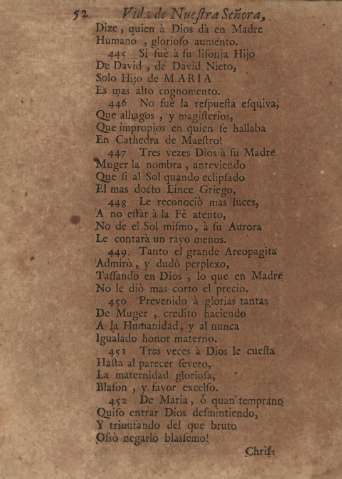 52 Vida de Nuestra Señora,
Dize, quien à Dios dà en Madre
Humano, glorioso aumento.
445 Si fuè à su lisonja Hijo
De David, de David Nieto,
Solo Hijo de MARIA
Es mas alto cognomento.
446 No fuè la respuesta esquiva,
Que alhagos, y magisterios,
Que impropios en quien se hallaba
En Cathedra de Maestro!
447 Tres vezes Dios à su Madre
Muger la nombra, anteviendo
Que si al Sol quando eclipsado
El mas docto Lince Griego,
448 Le reconociò mas luces,
A no estàr à la Fè atento,
No de el Sol mismo, à su Aurora
Le contarà un rayo menos.
449 Tanto el grande Areopagita
Admirò, y dudò perplexo,
Tassando en Dios, lo que en Madre
No le diò mas corto el precio.
450 Prevenido à glorias tantas
De Muger, credito haciendo
A la Humanidad, y al nunca
Igualado honor materno.
451 Tres veces à Dios le cuesta
Hasta al parecer severo,
La maternidad gloriosa,
Blason, y favor excelso.
452 De Maria, ò quan temprano
Quiso entrar Dios desmintiendo,
Y triunfando del que bruto
Ossò negarlo blasfemo!
Christ